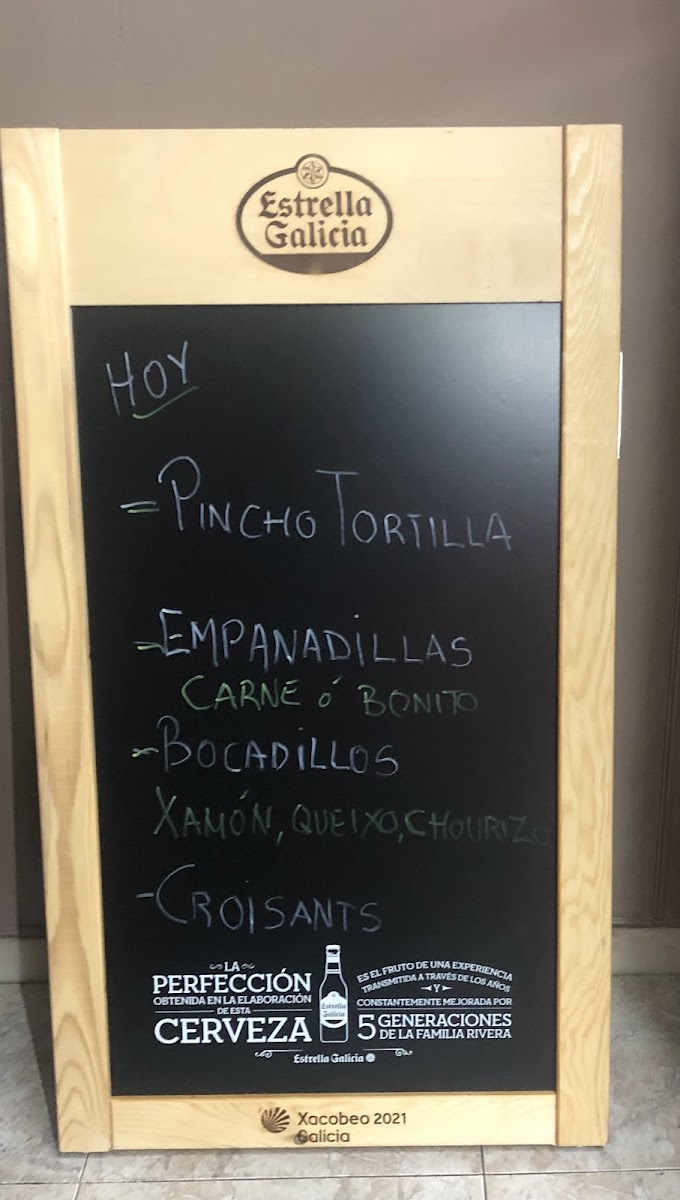 Estrella
Galicia
HOY
= PINCHO TORTILLA
- EMPANADILLAS
CARNE ó BONITO
- BOCADILLOS
XAMÓN, QUEIXO, CHOURIZO
- CROISANTS
LA
PERFECCIÓN
OBTENIDA EN LA ELABORACIÓN
DE ESTA
CERVEZA
Estrella
Galicia
ES EL FRUTO DE UNA EXPERIENCIA
TRANSMITIDA A TRAVÉS DE LOS AÑOS
Y
CONSTANTEMENTE MEJORADA POR
5 GENERACIONES
DE LA FAMILIA RIVERA
Estrella Galicia
Xacobeo 2021
Galicia